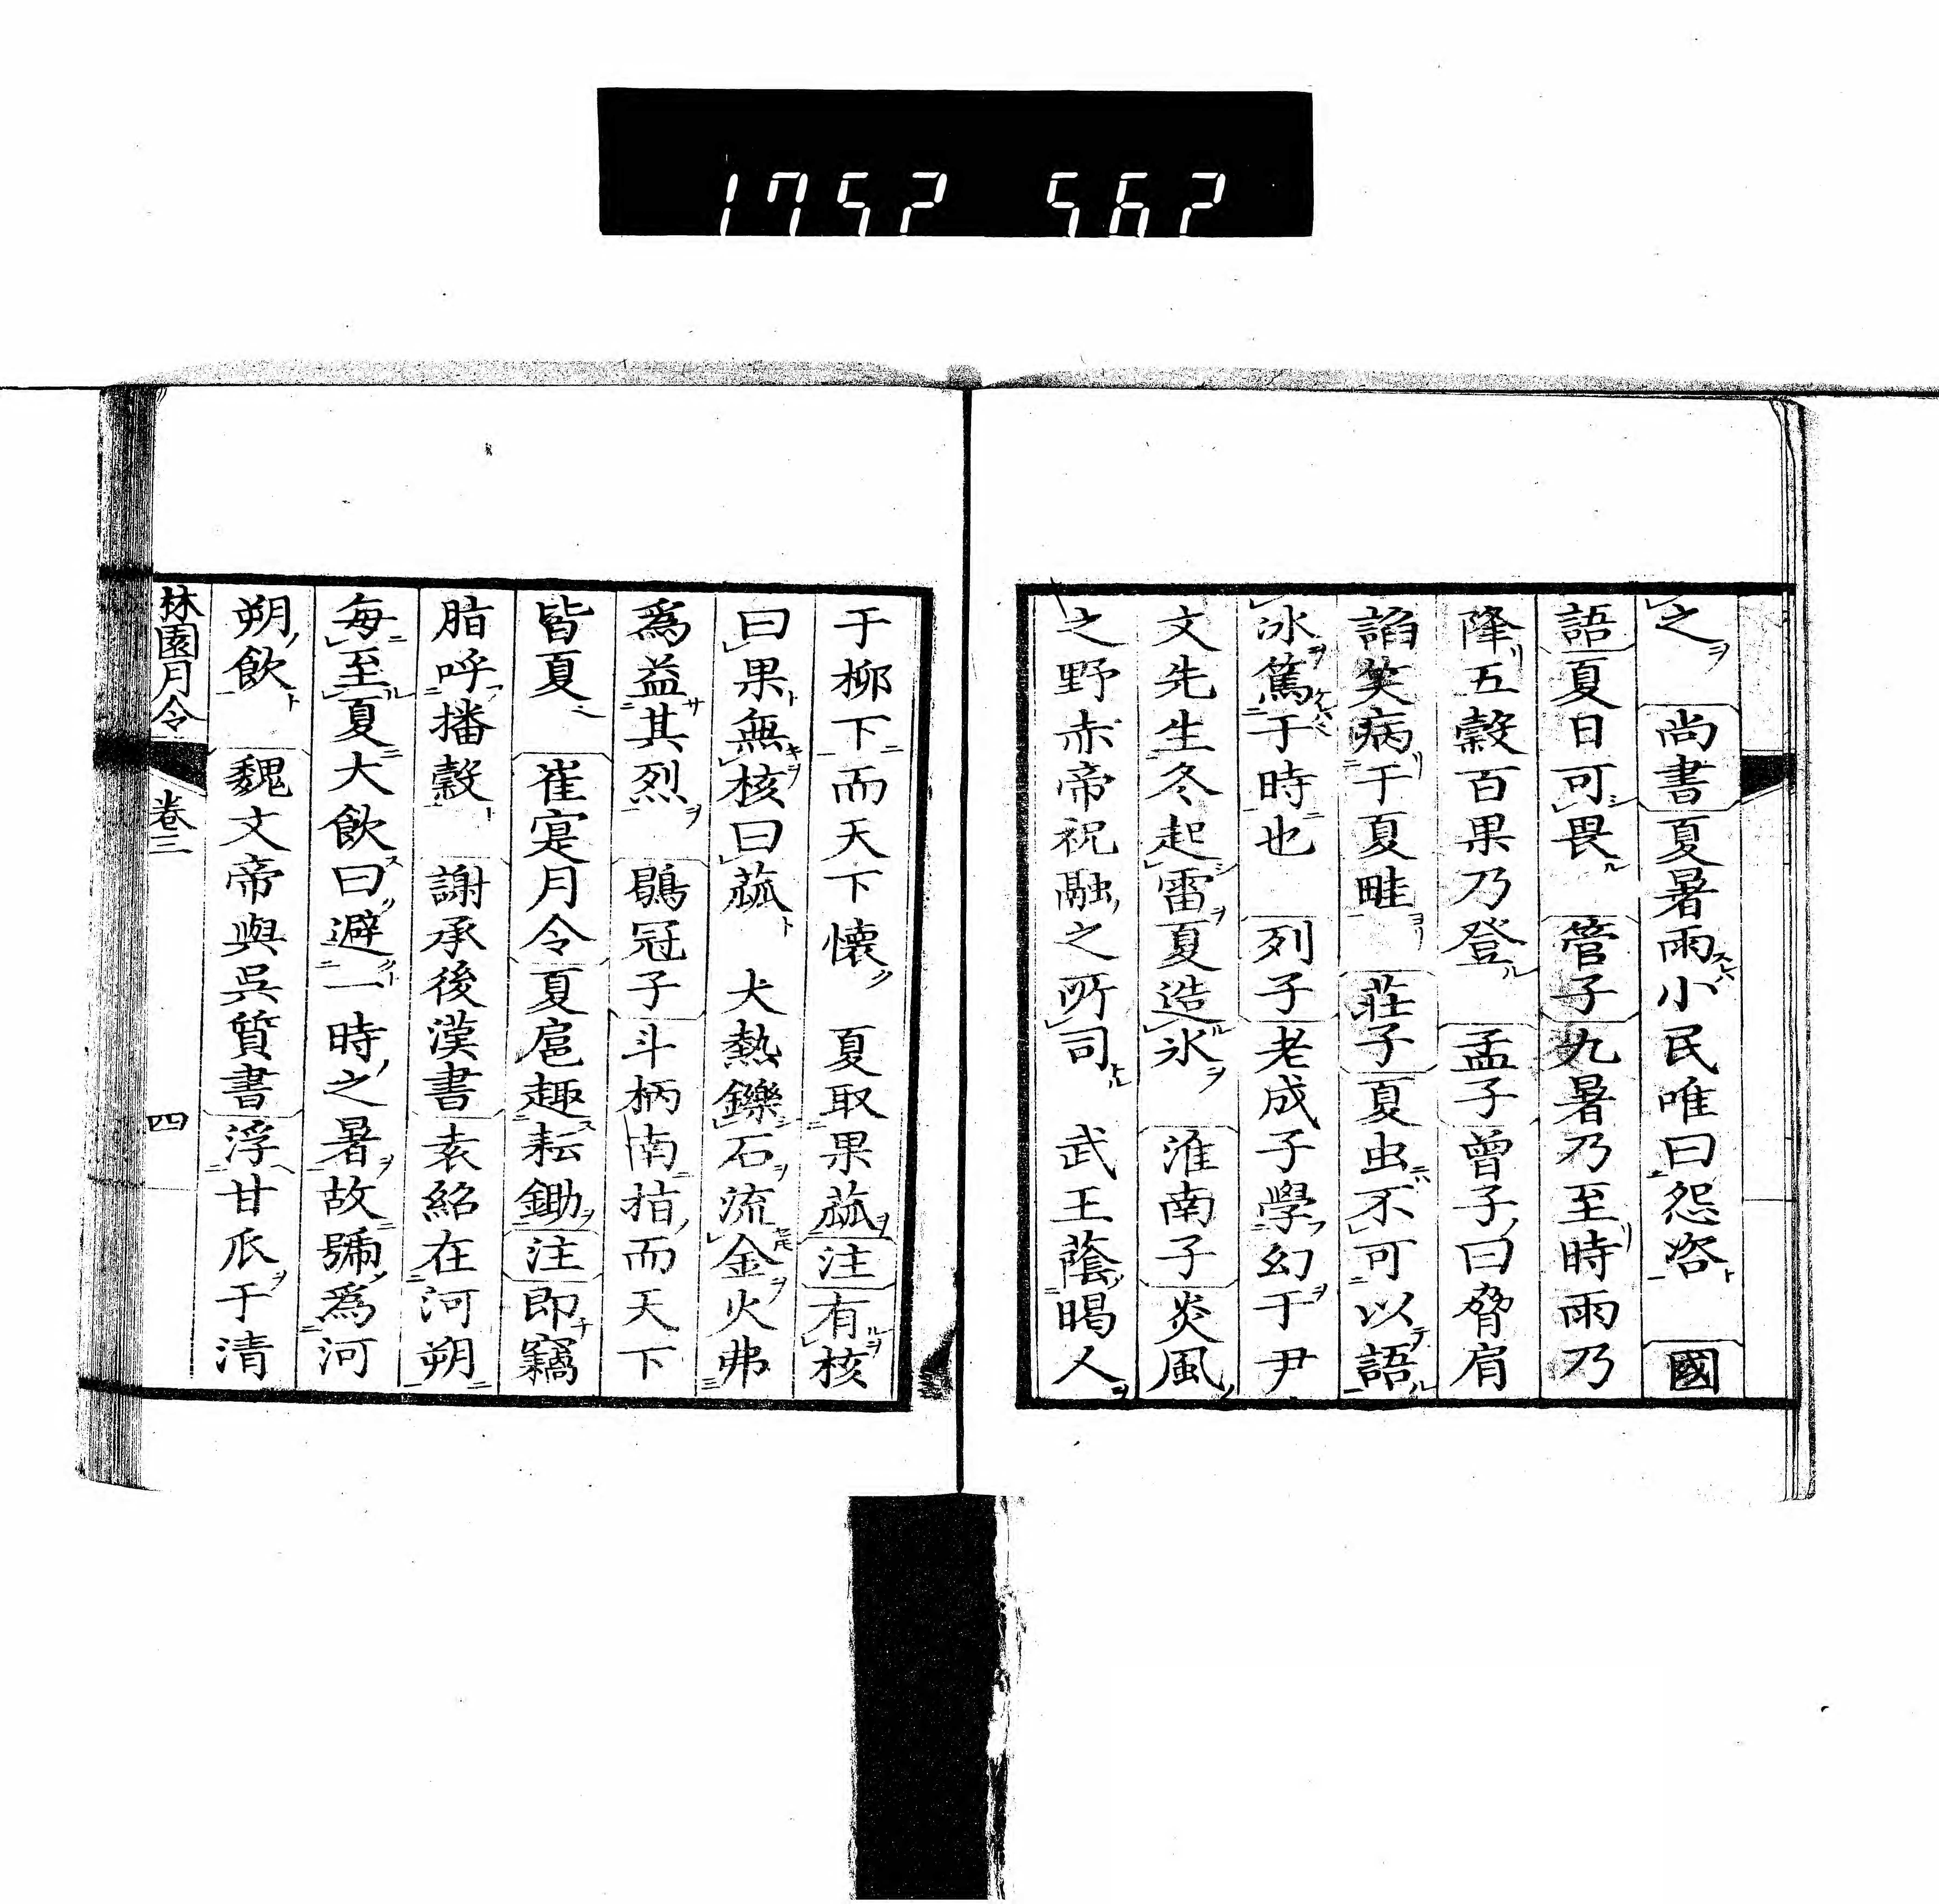 1752 562
之　尚書夏暑雨小民唯曰怨咨　國
語夏日可畏　管子九暑乃至時雨乃
降五穀百果乃登　孟子曾子曰脅肩
諂笑病于夏畦　莊子夏虫不可以語
冰篤于時也　列子老成子學幻于尹
文先生冬起雷夏造氷　淮南子炎風
之野赤帝祝融之所司　武王蔭暍人
于柳下而天下懷　夏取果蓏注有核
曰果無核曰蓏　大熱鑠石流金火弗
爲益其烈　鶡冠子斗柄南指而天下
皆夏　崔寔月令夏扈趣耘鋤注即竊
脂呼播穀　謝承後漢書袁紹在河朔
每至夏大飲曰避一時之暑故號爲河
朔飲　魏文帝與吳質書浮甘瓜于清
林園月令　卷三　四